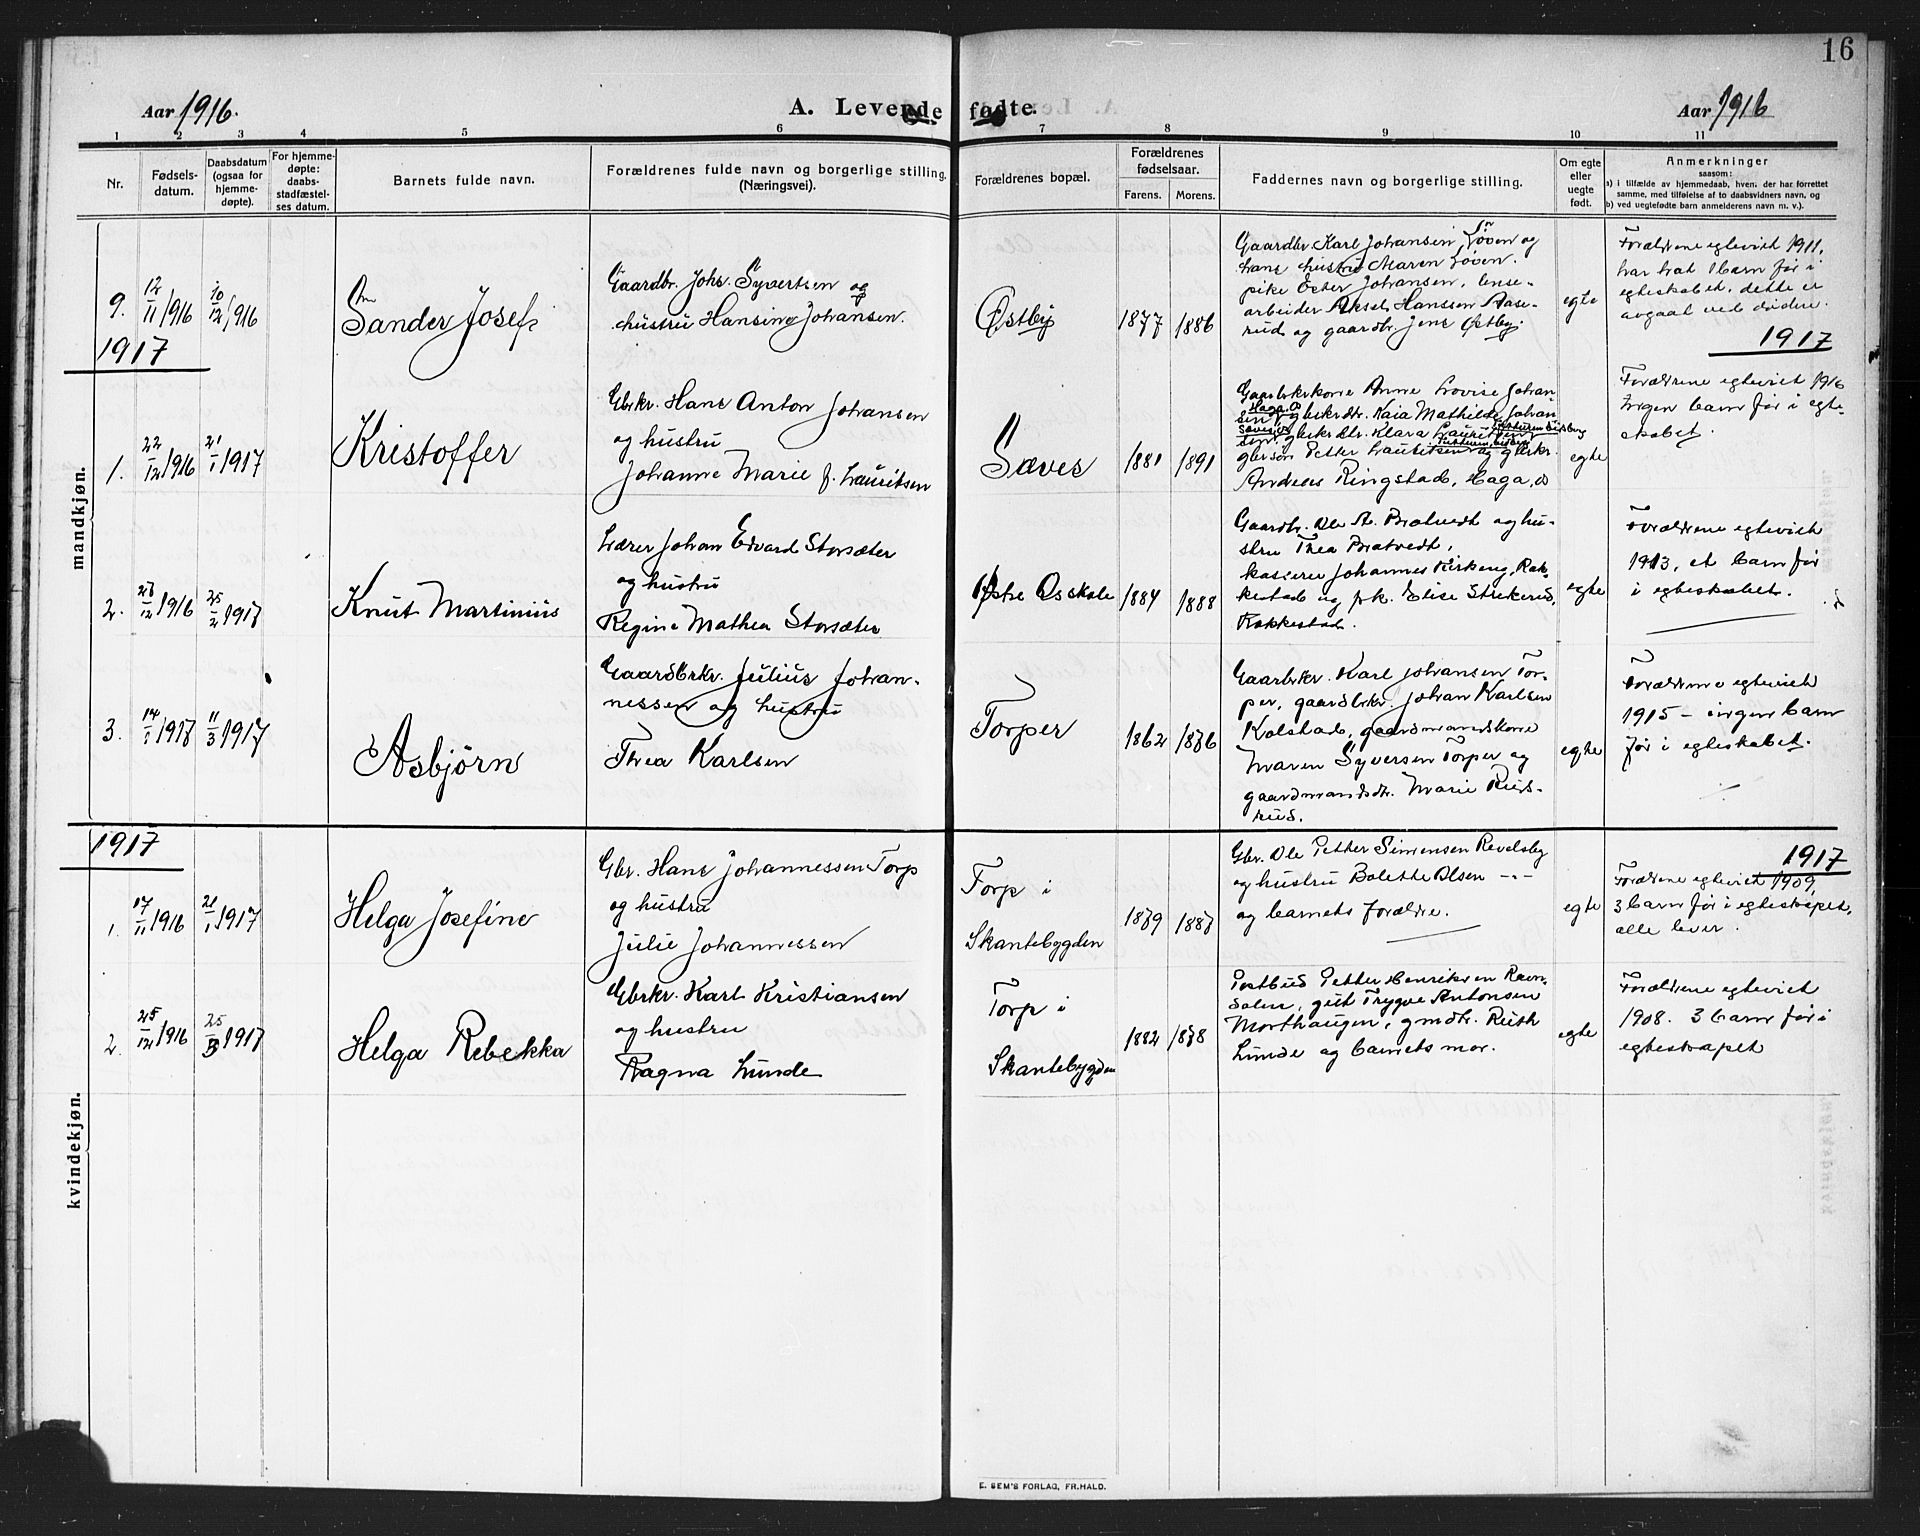 16
Aar 1916.
A. Levende fødte.
Aar 1916
1 2 3 4 5 6 7 8 9 10 11
Nr.
Fødsels-
datum.
Daabsdatum
(ogsaa for
hjemme-
døpte).
For hjemme-
døpte:
daabs-
stadfæstel-
ses datum.
Barnets fulde navn.
Forældrenes fulde navn og borgerlige stilling.
(Næringsvei).
Forældrenes bopæl.
Forældrenes
fødselsaar.
Farens. Morens.
Faddernes navn og borgerlige stilling.
Om egte
eller
uegte
født.
Anmerkninger
saasom:
a) i tilfælde av hjemmedaab, hven: der har forrettet
samme, med tilføielse af to daabsvidners navn, og
b) ved uegtefødte barn anmelderens navn m. v.).
mandkjøn.
9.
12/11 1916
10/12 1916
Sander Josef
Gaardbr. Johs. Syvertsen og
hustru Hansine Johansen.
Østby
1877 1886
Gaardbr. Karl Johansen, Løven og
hans hustru Maren Løven.
pike Ester Johansen,
arbeider Aksel Hanssen Aase-
rud og gaardbr. Jens Østby.
egte
Forældrene egteviet 1911,
har hat 1 barn før i
egteskabet, dette er
avgaat ved døden.
1917
1917
1.
22/12 1916
21/1 1917
Kristoffer
Gbrkr. Hans Anton Johansen
og hustru
Johanne Marie f. Lauritsen
Sæves
1881 1891
Anne Lovise Johan-
sen, gbrkrdtr. Kaia Mathilde Johan-
sen, gbrkrdtr. Klara Lauritsen
gbrsøn Petter Lauritsen og gbrkr.
Andreas Ringstad, Haga, Ø
egte
Forældrene egteviet 1916
Ingen barn før i egte-
skabet.
2.
28/12 1916
25/2 1917
Knut Martinius
Lærer Johan Edvard Storsæter
og hustru
Regine Mathea Storsæter
Østre Osskole
1884 1888
Gaardbr. Ole A. Bratvedt og hu-
stru Thea Bratvedt,
kasserer Johannes Kirkeng, Rak-
kestad og frk. Elise Strekerud,
Rakkestad.
egte
Forældrene egteviet
1913, et barn før
i egteskabet.
3.
14/1 1917
11/3 1917
Asbjørn
Gaardbrkr. Julius Johan-
nessen og hustru
Thea Karlsen
Torper
1862 1876
Gaarbrkr. Karl Johansen Tor-
per, gaardbrkr. Johan Karlsen
Kolstad, gaardmandskone
Maren Syversen Torper og
gaardmandsdtr. Marie Ruds-
rud.
egte
Forældrene egteviet
1915 – ingen barn
før i egteskabet.
kvindekjøn.
1917
1917
1.
17/11 1916
21/1 1917
Helga Josefine
Gbr. Hans Johannessen Torp
og hustru
Julie Johannessen
Torp i
Skantebygden
1879 1887
Gbr. Ole Petter Simensen Revelsby
og hustru Bolette Olsen -"-
og barnets forældre.
egte
Forældrene egteviet 1909,
3 barn før i egteskapet,
alle lever.
2.
25/12 1916
25/3 1917
Helga Rebekka
Gbrkr. Karl Kristiansen
og hustru
Ragna Lunde
Torp i
Skantebygden
1882 1878
Postbud Petter Henriksen Raen-
dalen, gut Trygve Antonsen
Morthaugen, gmdtr. Ruth
Lunde og barnets mor.
egte
Forældrene egteviet
1908. 3 barn før i
egteskapet
E. SEM'S FORLAG, FR.HALD.